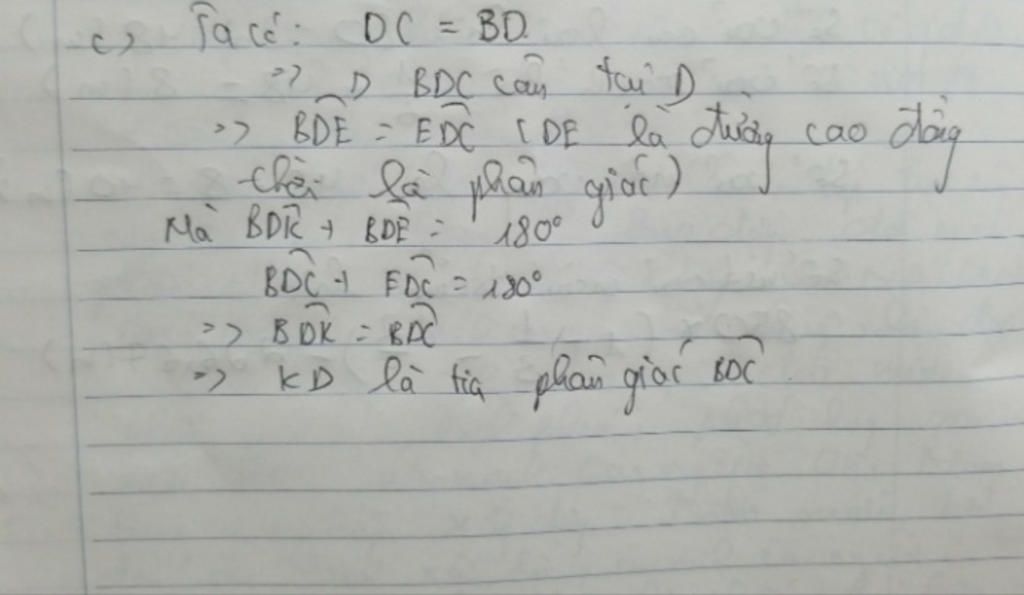 c) Ta có: DC = BD
=> D BDC cân tại D
=> BDE = EDC (DE là đường cao đồng
thời là phân giác)
Mà BDK + BDE = 180°
BDC + EDC = 180°
=> BDK = BDC
=> KD là tia phân giác BDC